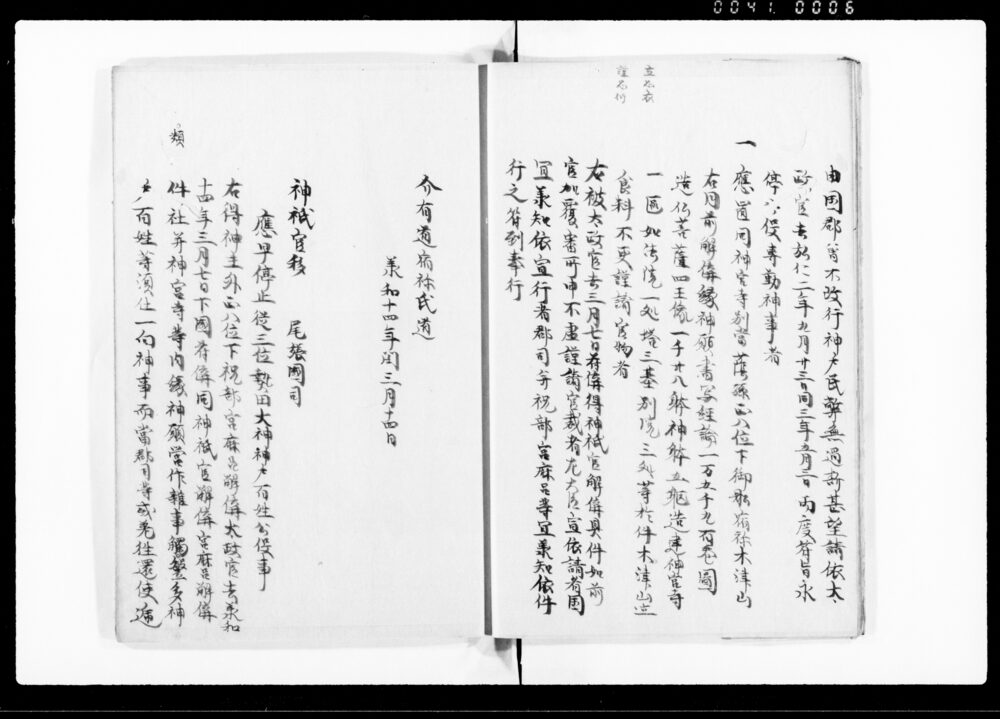 0041.0006
由国郡曽不改行神戸民弊無過斯甚望請依太
政官去弘仁二年九月廿三日同三年五月三日両度符旨永
停公役専勤神事者
一 應置同神宮寺別當蔭孫正八位下御船宿祢木津山
右同前解偁縁神願書写経論一万五千九百巻圖
造仏菩薩四王像一千廿八躰神躰五躯造建神宮寺
一區如法院一処塔三基別院三処等於件木津山
食料不更謹請官物者
右被太政官去三月七日符偁得神祇官解偁具件如前
官加覆審所申不虚謹請官裁者左大臣宣依請者国
宜承知依宣行者郡司并祝部宮麻呂等宜承知依件
行之符到奉行
介有道宿祢氏道
承和十四年閏三月十四日
神祇官移 尾張國司
應早停止従三位熱田大神神戸百姓公役事
右得神主外正八位下祝部宮麻呂解偁太政官去承和
十四年三月七日下國符偁同神祇官解偁宮麻呂解偁
類
件社并神宮寺等内縁神願當作雑事觸繁多神
戸百姓等須仕一向神事而當郡司等或差徃還使